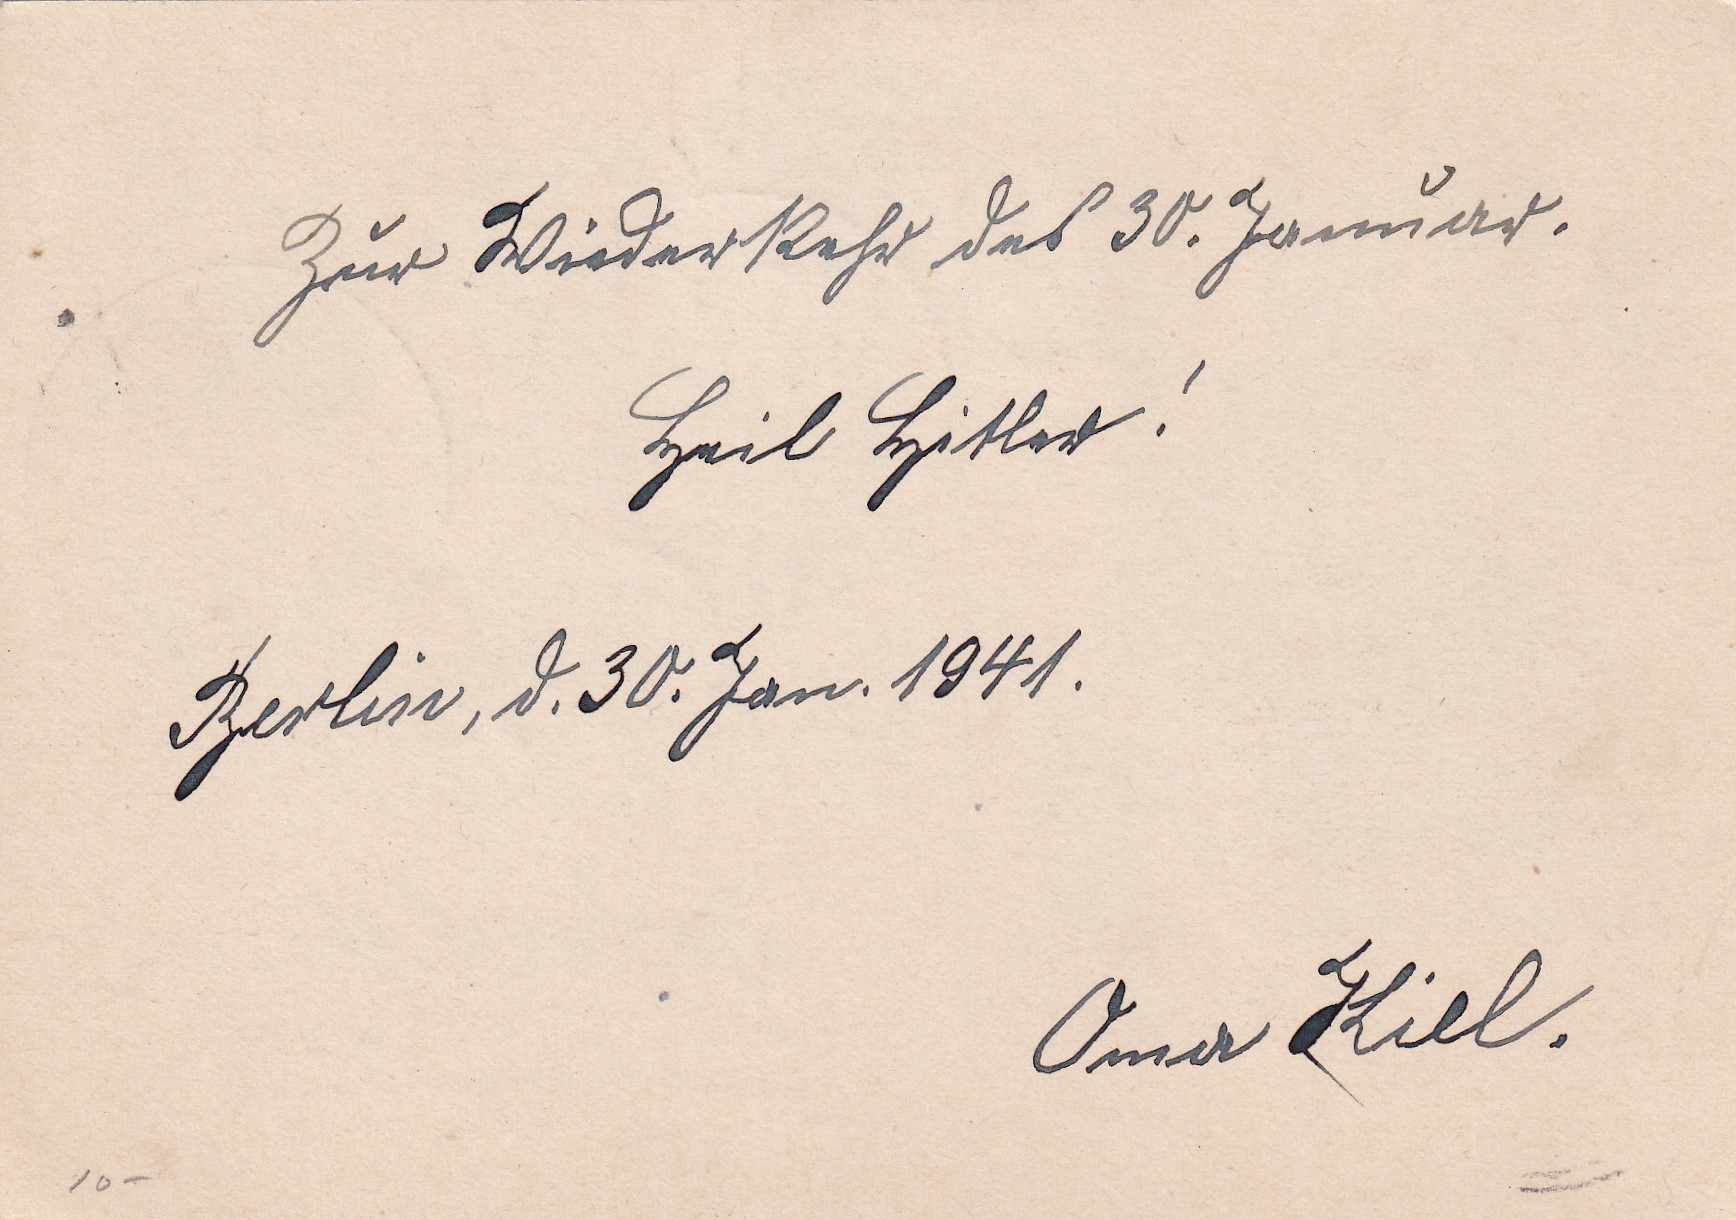 Zur Wiederkehr des 30. Januar.
Heil Hitler!
Berlin, d. 30. Jan. 1941.
Oma Kiel.
10-